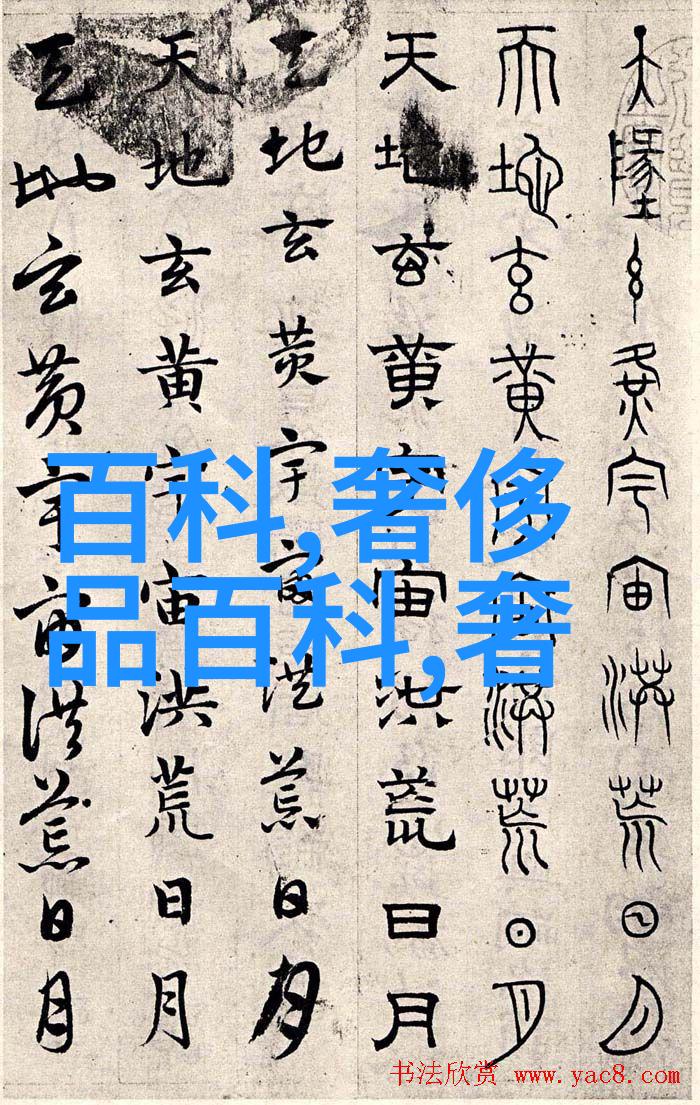 天墬玄黃宇宙洪荒日月
天地玄黃宇宙洪荒日月
天地玄黃宇宙洪荒日月
天地玄黃宇宙洪荒日月
天地玄黃宇宙洪荒日月
天地玄黃宇宙洪荒日月
百科,奢侈
品百科,奢
书法欣赏 www.yac8.com